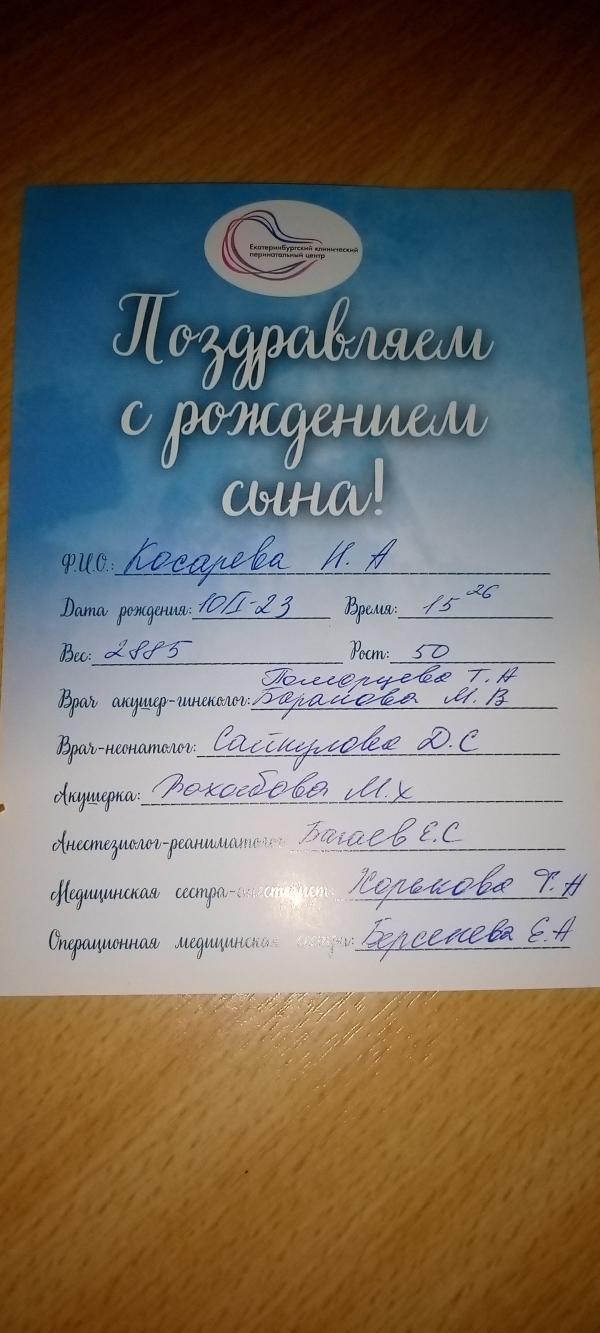 Екатеринбургский клинический
перинатальный центр
Поздравляем
с рождением
сына!
Ф.И.О.: Косарева Н. А
Дата рождения: 10/II-23 Время: 15 26
Вес: 2885 Рост: 50
Поморцева Т. А
Врач акушер-гинеколог: Баранова М. В
Врач-неонатолог: Сайкулова Д. С
Акушерка: М. Х
Анестезиолог-реаниматолог: Багаев Е. С
Медицинская сестра-анестезист: Т. А
Операционная медицинская сестра: Берсенева Е. А